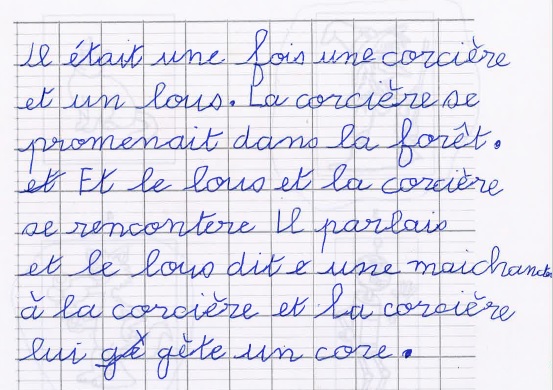 Il était une fois une corcière
et un lous. La corcière se
promenait dans la forêt.
et Et le lous et la corcière
se rencontere Il parlais
et le lous dit e une maichance
à la corcière et la corcière
lui gè gète un core.